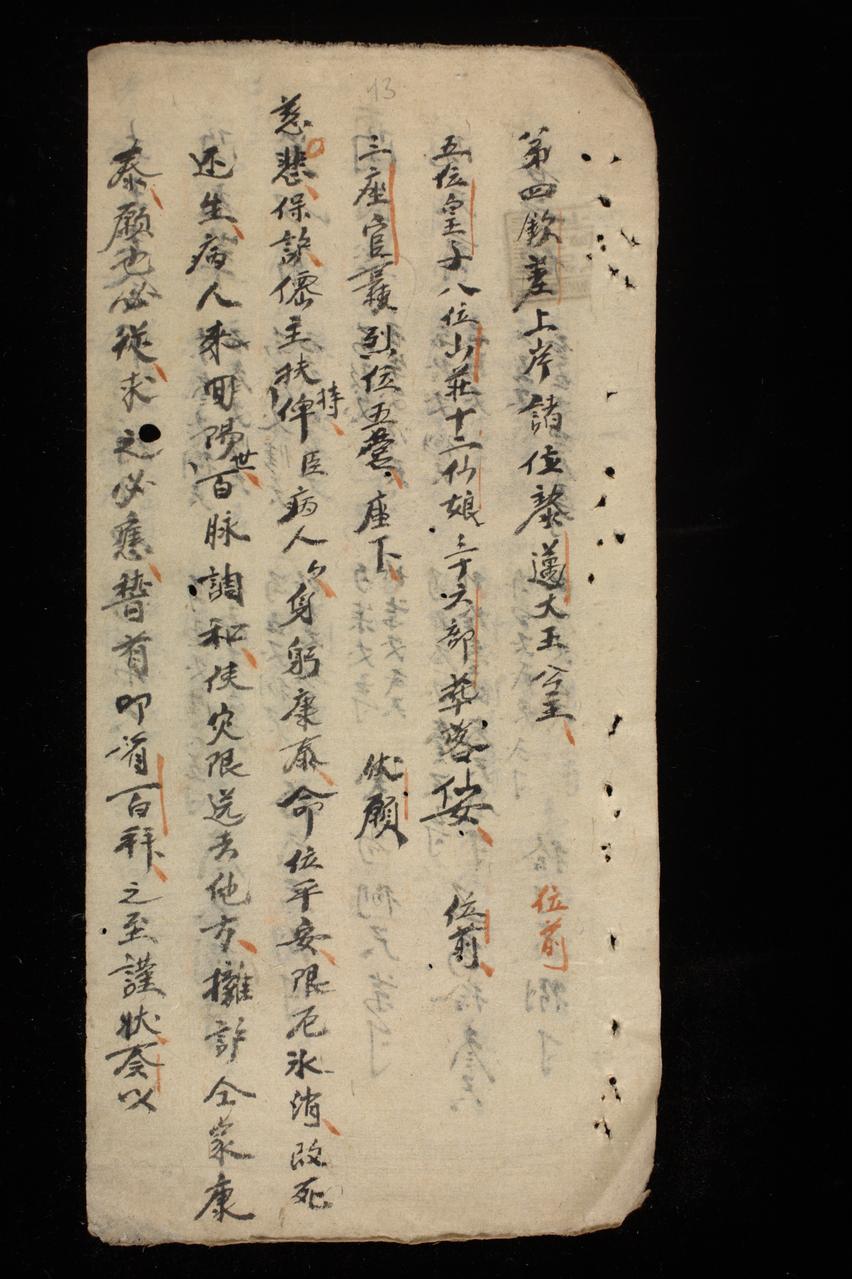 13
第四欽差上岸諸位黎邁大王公主 位前
五位皇子八位山莊十二仙娘三十六部葬落仙娑 位前
三座官義烈位五營座下 伏願
慈悲保許儒主扶持俾臣病人々身躬康泰命位平安限厄氷消改死
还生病人来回陽世百脉調和使灾限送去他方擁許仝家康
泰願也必從求之必應暬首叩首百拜之至謹狀奏以